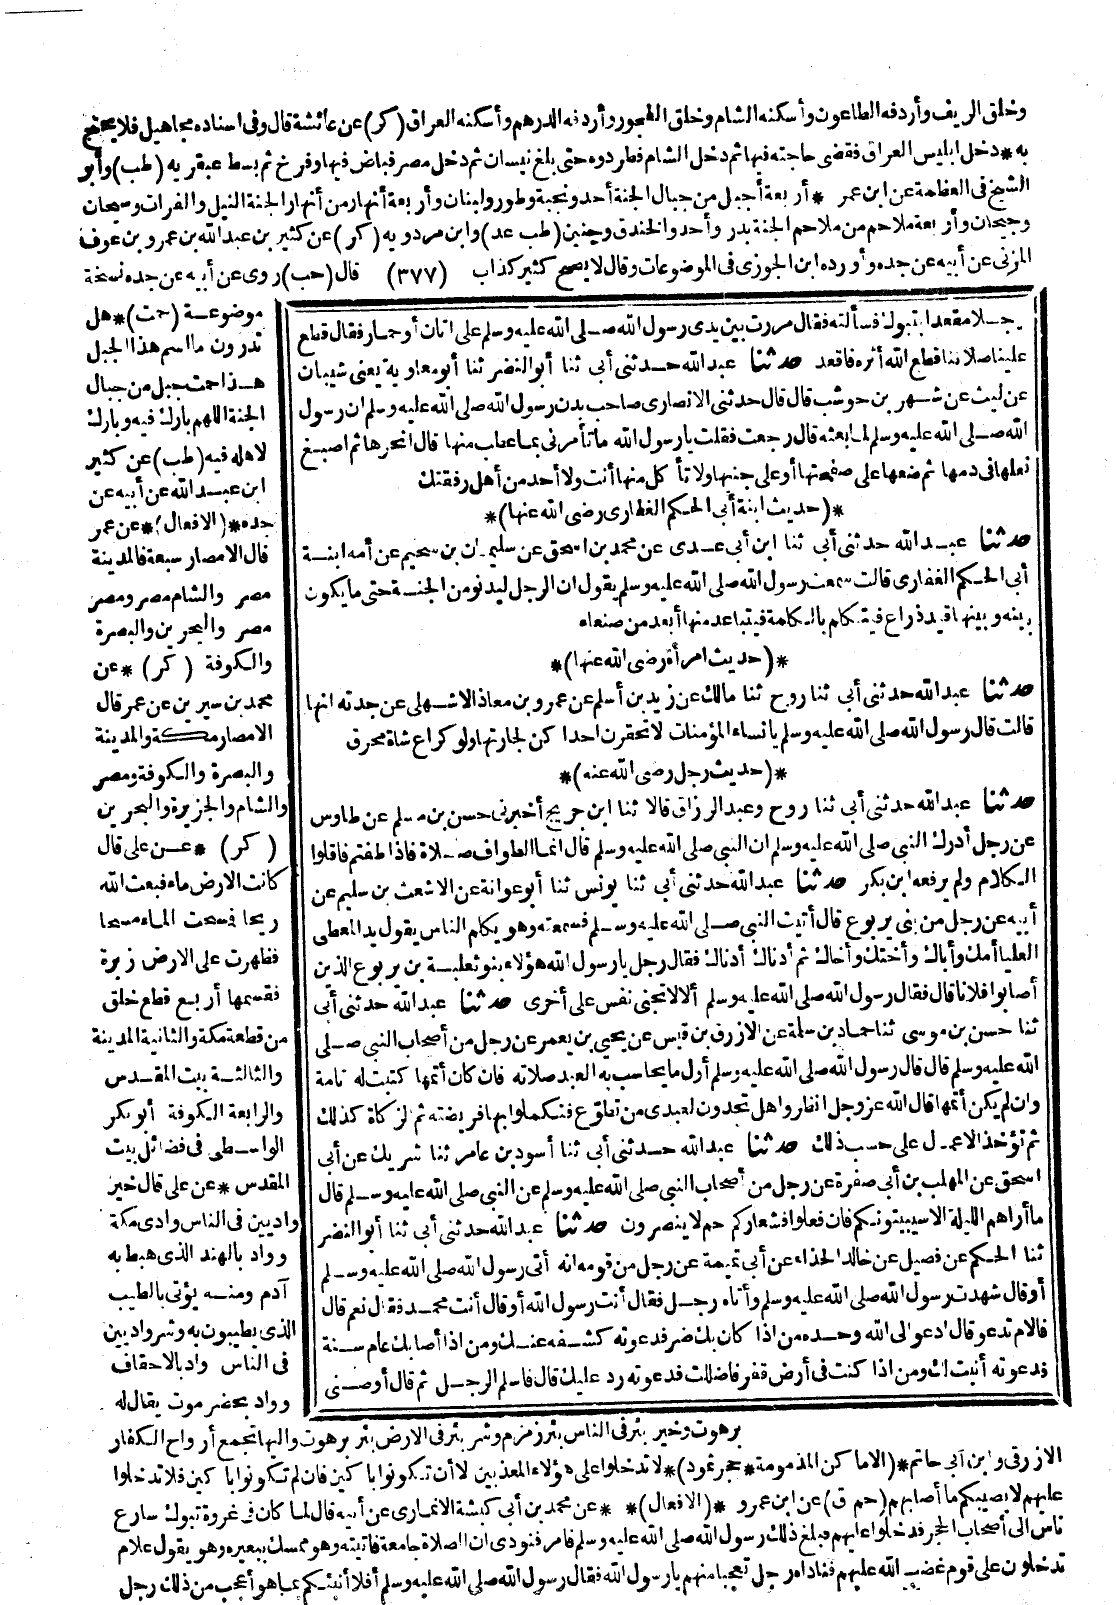 وخلق الريف وأردفه الطاعون وأسكنه الشام وخلق الفجور وأردفه الدرهم وأسكنه العراق (كر) عن عائشة قال وفى اسناده مجاهيل فلا يحتج
به * دخل ابليس العراق فقضى حاجته فيها ثم دخل الشام فطردوه حتى بلغ بيسان ثم دخل مصر فباض فيها وفرخ ثم بسط عبقريه (طب) وأبو
الشيخ فى العظمة عن ابن عمر * أربعة أجبل من جبال الجنة أحد ونجبة وطور ولبنان وأربعة أنهار من أنهار الجنة النيل والفرات وسيحان
وجيحان وأربعة ملاحم من ملاحم الجنة بدر وأحد والخندق وحنين (طب عد) وابن مردويه (كر) عن كثير بن عبد الله بن عمرو بن عوف
المزنى عن أبيه عن جده وأورده ابن الجوزى فى الموضوعات وقال لا يصح كثير كذاب (٣٧٧) قال (حب) روى عن أبيه عن جده نسخة
موضوعة (حمت) * هل
تدرون ما اسم هذا الجبل
هذا حمت جبل من جبال
الجنة اللهم بارك فيه وبارك
لاهله فيه (طب) عن كثير
ابن عبد الله عن أبيه عن
جده * (الافعال) * عن عمر
قال الامصار سبعة فالمدينة
مصر والشام مصر ومصر
مصر والبحرين والبصرة
والكوفة (كر) * عن
محمد بن سيرين عن عمر قال
الامصار مكة والمدينة
والبصرة والكوفة ومصر
والشام والجزيرة والبحرين
(كر) * عن على قال
كانت الارض ماء فبعث الله
ريحا فمسحت الماء مسحا
فظهرت على الارض زبرة
فقسمها أربع قطع خلق
من قطعة مكة والثانية المدينة
والثالثة بيت المقدس
والرابعة الكوفة أبو بكر
الواسطى فى فضائل بيت
المقدس * عن على قال خير
واديين فى الناس وادى مكة
وواد بالهند الذى هبط به
آدم ومنه يؤتى بالطيب
الذى يطيبون به وشر واديين
فى الناس واد بالاحقاف
وواد بحضرموت يقال له
رجلا مقعدا بتبوك فسألته فقال مررت بين يدى رسول الله صلى الله عليه وسلم على اتان أوحمار فقال قطع
علينا صلاتنا قطع الله أثره فاقعد حدثنا عبد الله حدثنى أبى ثنا أبو النضر ثنا أبو معاوية يعنى شيبان
عن ليث عن شهر بن حوشب قال قال حدثنى الانصارى صاحب بدن رسول الله صلى الله عليه وسلم ان رسول
الله صلى الله عليه وسلم لما بعثه قال رجعت فقلت يا رسول الله ما تأمرنى بما عطب منها قال انحرها ثم اصبغ
نعلها فى دمها ثم ضعها على صفحتها أو على جنبها ولا تأكل منها أنت ولا أحد من أهل رفقتك
* (حديث ابنة أبى الحكم الغفارى رضى الله عنها) *
حدثنا عبد الله حدثنى أبى ثنا ابن أبى عدى عن محمد بن اسحق عن سليمان بن سحيم عن أمه ابنة
أبى الحكم الغفارى قالت سمعت رسول الله صلى الله عليه وسلم يقول ان الرجل ليدنو من الجنة حتى ما يكون
بينه وبينها قيد ذراع فيتكلم بالكلمة فيتباعد منها أبعد من صنعاء
* (حديث امرأة رضى الله عنها) *
حدثنا عبد الله حدثنى أبى ثنا روح ثنا مالك عن زيد بن أسلم عن عمرو بن معاذ الاشهلى عن جدته انها
قالت قال رسول الله صلى الله عليه وسلم يا نساء المؤمنات لا تحقرن احدا كن لجارتها ولو كراع شاة محرق
* (حديث رجل رضى الله عنه) *
حدثنا عبد الله حدثنى أبى ثنا روح وعبد الرزاق قالا ثنا ابن جريج أخبرنى حسن بن مسلم عن طاوس
عن رجل أدرك النبى صلى الله عليه وسلم ان النبى صلى الله عليه وسلم قال انما الطواف صلاة فاذا طفتم فاقلوا
الكلام ولم يرفعه ابن بكر حدثنا عبد الله حدثنى أبى ثنا يونس ثنا أبو عوانة عن الاشعث بن سليم عن
أبيه عن رجل من بنى يربوع قال أتيت النبى صلى الله عليه وسلم فسمعته وهو يكلم الناس يقول يد المعطى
العليا أمك وأباك وأختك وأخاك ثم أدناك أدناك فقال رجل يا رسول الله هؤلاء بنو ثعلبة بن يربوع الذين
أصابوا فلانا قال فقال رسول الله صلى الله عليه وسلم ألا لا تجنى نفس على أخرى حدثنا عبد الله حدثنى أبى
ثنا حسن بن موسى ثنا حماد بن سلمة عن الازرق بن قيس عن يحيى بن يعمر عن رجل من أصحاب النبى صلى
الله عليه وسلم قال قال رسول الله صلى الله عليه وسلم أول ما يحاسب به العبد صلاته فان كان أتمها كتبت له تامة
وان لم يكن أتمها قال الله عز وجل انظروا هل تجدون لعبدى من تطوع فتكملوا بها فريضته ثم الزكاة كذلك
ثم تؤخذ الاعمال على حسب ذلك حدثنا عبد الله حدثنى أبى ثنا أسود بن عامر ثنا شريك عن أبى
اسحق عن المهلب بن أبى صفرة عن رجل من أصحاب النبى صلى الله عليه وسلم عن النبى صلى الله عليه وسلم قال
ما أراهم الليلة الا سيبيتونكم فان فعلوا فشعاركم حم لا ينصرون حدثنا عبد الله حدثنى أبى ثنا أبو النضر
ثنا الحكم عن فصيل عن خالد الحذاء عن أبى تميمة عن رجل من قومه انه أتى رسول الله صلى الله عليه وسلم
أو قال شهدت رسول الله صلى الله عليه وسلم وأتاه رجل فقال أنت رسول الله أو قال أنت محمد فقال نعم قال
فالام تدعو قال ادعو الى الله وحده من اذا كان بك ضر فدعوته كشفه عنك ومن اذا أصابك عام سنة
فدعوته أنبت لك ومن اذا كنت فى أرض قفر فاضللت فدعوته رد عليك قال فاسلم الرجل ثم قال أوصنى
برهوت وخير بئر فى الناس بئر زمزم وشر بئر فى الارض بئر برهوت واليها تجمع أرواح الكفار
الازرقى وابن أبى حاتم * (الاماكن المذمومة * حجر ثمود) * لا تدخلوا على هؤلاء المعذبين لا أن تكونوا باكين فان لم تكونوا باكين فلا تدخلوا
عليهم لا يصيبكم ما أصابهم (حم ق) عن ابن عمرو * (الافعال) * * عن محمد بن أبى كبشة الانمارى عن أبيه قال لما كان فى غزوة تبوك سارع
ناس الى أصحاب الحجر فدخلوا عليهم فبلغ ذلك رسول الله صلى الله عليه وسلم فامر فنودى ان الصلاة جامعة فاتيته وهو ممسك ببعيره وهو يقول علام
تدخلون على قوم غضب الله عليهم فناداه رجل تعجبا منهم يا رسول الله فقال رسول الله صلى الله عليه وسلم أفلا أنبئكم بما هو أعجب من ذلك رجل